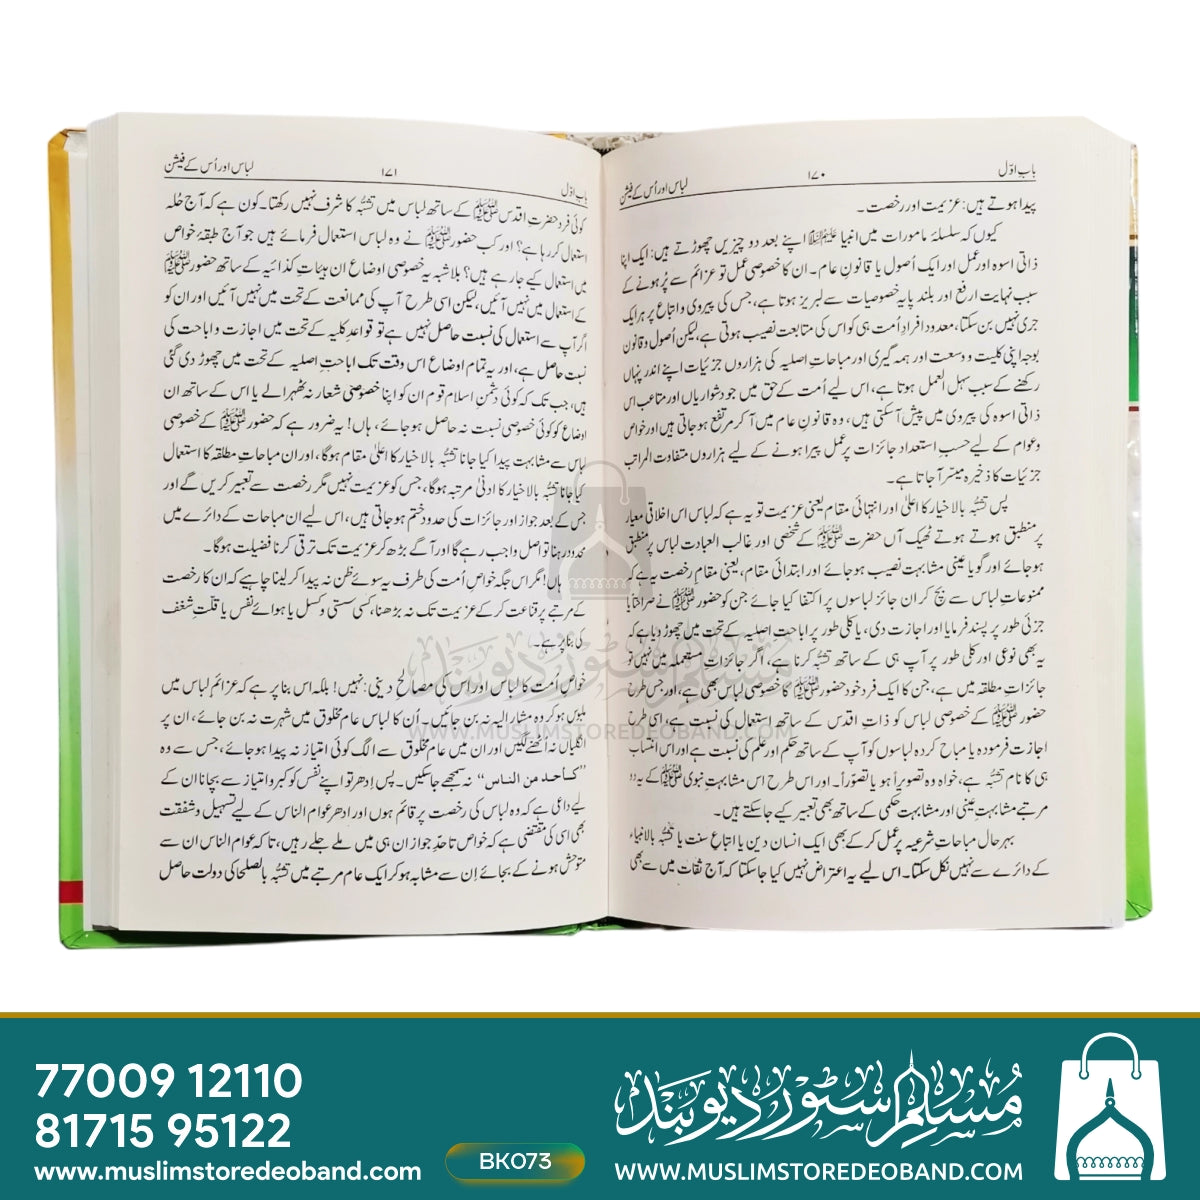 باب اوّل ۱۷۰ لباس اور اُس کے فیشن
پیدا ہوتے ہیں: عزیمت اور رخصت۔
کیوں کہ سلسلۂ مامورات میں انبیا علیہم السلام اپنے بعد دو چیزیں چھوڑتے ہیں: ایک اپنا
ذاتی اسوہ اور عمل اور ایک اُصول یا قانونِ عام۔ ان کا خصوصی عمل تو عزائم سے پُر ہونے کے
سبب نہایت ارفع اور بلند پایہ خصوصیات سے لبریز ہوتا ہے، جس کی پیروی و اتباع پر ہر ایک
جری نہیں بن سکتا، معدود افرادِ اُمت ہی کو اس کی متابعت نصیب ہوتی ہے، لیکن اُصول و قانون
بوجہ اپنی کلیت و وسعت اور ہمہ گیری اور مباحاتِ اصلیہ کی ہزاروں جزئیات اپنے اندر پنہاں
رکھنے کے سبب سہل العمل ہوتا ہے، اس لیے اُمت کے حق میں جو دشواریاں اور متاعب اس
ذاتی اسوہ کی پیروی میں پیش آسکتی ہیں، وہ قانونِ عام میں آکر مرتفع ہوجاتی ہیں اور خواص
و عوام کے لیے حسبِ استعداد جائزات پر عمل پیرا ہونے کے لیے ہزاروں متفاوت المراتب
جزئیات کا ذخیرہ میسّر آجاتا ہے۔
پس تشبّہ بالاخیار کا اعلیٰ اور انتہائی مقام یعنی عزیمت تو یہ ہے کہ لباس اس اخلاقی معیار
پر منطبق ہوتے ہوتے ٹھیک آں حضرت ﷺ کے شخصی اور غالب العبادت لباس پر منطبق
ہوجائے اور گویا عینی مشابہت نصیب ہوجائے اور ابتدائی مقام، یعنی مقامِ رخصت یہ ہے کہ
ممنوعاتِ لباس سے بچ کر ان جائز لباسوں پر اکتفا کیا جائے جن کو حضور ﷺ نے صراحتاً یا
جزئی طور پر پسند فرمایا اور اجازت دی، یا کلی طور پر اباحتِ اصلیہ کے تحت میں چھوڑ دیا ہے کہ
یہ بھی نوعی اور کلی طور پر آپ ہی کے ساتھ تشبّہ کرنا ہے، اگر جائزات مستعملہ میں نہیں تو
جائزاتِ مطلقہ میں ہے، جن کا ایک فرد خود حضور ﷺ کا خصوصی لباس بھی ہے، اور جس طرح
حضور ﷺ کے خصوصی لباس کو ذاتِ اقدس کے ساتھ استعمال کی نسبت ہے، اسی طرح
اجازت فرمودہ یا مباح کردہ لباسوں کو آپ کے ساتھ حکم اور علم کی نسبت ہے اور اس انتساب
ہی کا نام تشبّہ ہے، خواہ وہ تصویراً ہو یا تصوّراً۔ اور اس طرح اس مشابہتِ نبوی ﷺ کے یہ دو
مرتبے مشابہتِ عینی اور مشابہتِ حکمی کے ساتھ بھی تعبیر کیے جاسکتے ہیں۔
بہر حال مباحاتِ شرعیہ پر عمل کرکے بھی ایک انسان دین یا اتباعِ سنت یا تشبّہ بالانبیاء
کے دائرے سے نہیں نکل سکتا۔ اس لیے یہ اعتراض نہیں کیا جاسکتا کہ آج ثقات میں سے بھی
باب اوّل ۱۷۱ لباس اور اُس کے فیشن
کوئی فرد حضرتِ اقدس ﷺ کے ساتھ لباس میں تشبّہ کا شرف نہیں رکھتا۔ کون ہے کہ آج حُلہ
استعمال کر رہا ہے؟ اور کب حضور ﷺ نے وہ لباس استعمال فرمائے ہیں جو آج طبقۂ خواص
میں استعمال کیے جارہے ہیں؟ بلاشبہ یہ خصوصی اوضاع ان ہیئاتِ کذائیہ کے ساتھ حضور ﷺ
کے استعمال میں نہیں آئیں، لیکن اسی طرح آپ کی ممانعت کے تحت میں نہیں آئیں اور ان کو
اگر آپ سے استعمال کی نسبت حاصل نہیں ہے تو قواعدِ کلیہ کے تحت میں اجازت و اباحت کی
نسبت حاصل ہے، اور یہ تمام اوضاع اس وقت تک اباحتِ اصلیہ کے تحت میں چھوڑ دی گئی
ہیں، جب تک کہ کوئی دشمنِ اسلام قوم ان کو اپنا خصوصی شعار نہ ٹھہرالے یا اس کے ساتھ ان
اوضاع کو کوئی خصوصی نسبت نہ حاصل ہوجائے، ہاں! یہ ضرور ہے کہ حضور ﷺ کے خصوصی
لباس سے مشابہت پیدا کیا جانا تشبّہ بالاخیار کا اعلیٰ مقام ہوگا، اور ان مباحاتِ مطلقہ کا استعمال
کیا جانا تشبّہ بالاخیار کا ادنیٰ مرتبہ ہوگا، جس کو عزیمت نہیں مگر رخصت سے تعبیر کریں گے اور
جس کے بعد جواز اور جائزات کی حدود ختم ہوجاتی ہیں، اس لیے ان مباحات کے دائرے میں
محدود رہنا تو اصل واجب رہے گا اور آگے بڑھ کر عزیمت تک ترقی کرنا فضیلت ہوگا۔
ہاں! مگر اس جگہ خواصِ اُمت کی طرف یہ سوئے ظن نہ پیدا کرلینا چاہیے کہ ان کا رخصت
کے مرتبے پر قناعت کرکے عزیمت تک نہ بڑھنا، کسی سستی و کسل یا ہوائے نفس یا قلّتِ شغف
کی بنا پر ہے۔
خواصِ اُمت کا لباس اور اس کی مصالحِ دینی: نہیں! بلکہ اس بنا پر ہے کہ عزائمِ لباس میں
ملبوس ہوکر وہ مشارالیہ نہ بن جائیں۔ اُن کا لباس عام مخلوق میں شہرت نہ بن جائے، ان پر
انگلیاں نہ اُٹھنے لگیں اور ان میں عام مخلوق سے الگ کوئی امتیاز نہ پیدا ہوجائے، جس سے وہ
”کأحد من الناس“ نہ سمجھے جاسکیں۔ پس اِدھر تو اپنے نفس کو کبر و امتیاز سے بچانا ان کے
لیے داعی ہے کہ وہ لباس کی رخصت پر قائم ہوں اور اِدھر عوام الناس کے لیے تسہیل و شفقت
بھی اسی کی مقتضی ہے کہ خواص تاحدِّ جواز ان ہی میں ملے جلے رہیں، تاکہ عوام الناس ان سے
متوحش ہونے کے بجائے اِن سے مشابہ ہوکر ایک عام مرتبے میں تشبّہ بالصلحا کی دولت حاصل
مسلم سٹور دیوبند
WWW.MUSLIMSTOREDEOBAND.COM
77009 12110
81715 95122
www.muslimstoredeoband.com
BK073
مسلم سٹور دیوبند
WWW.MUSLIMSTOREDEOBAND.COM